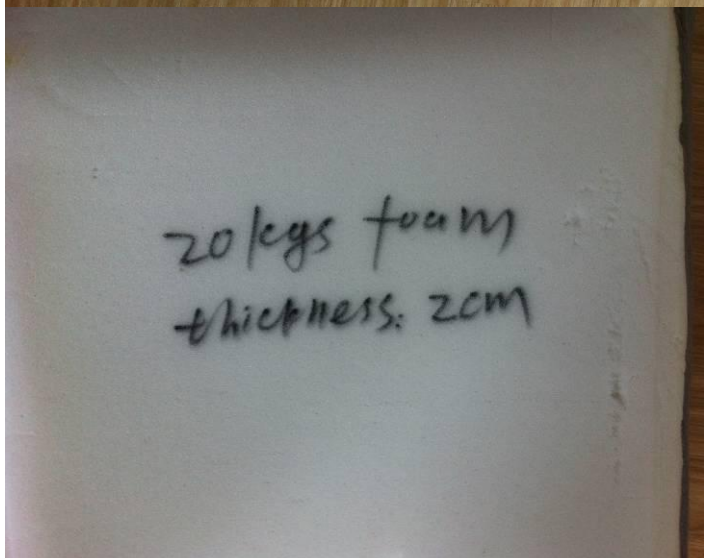 20kgs foam
thickness: 2cm